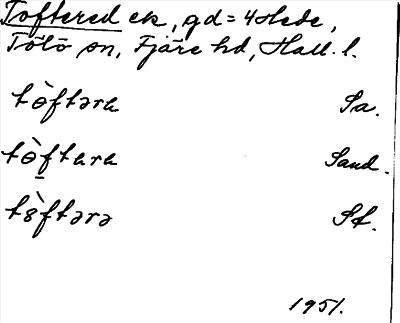 Toftered ek, gd = 4 Hede,
Tölö sn, Fjäre hd, Hall. l.
tòftəra Sa.
tò̱ftara Sand.
tö̀ftərə St.
1951.